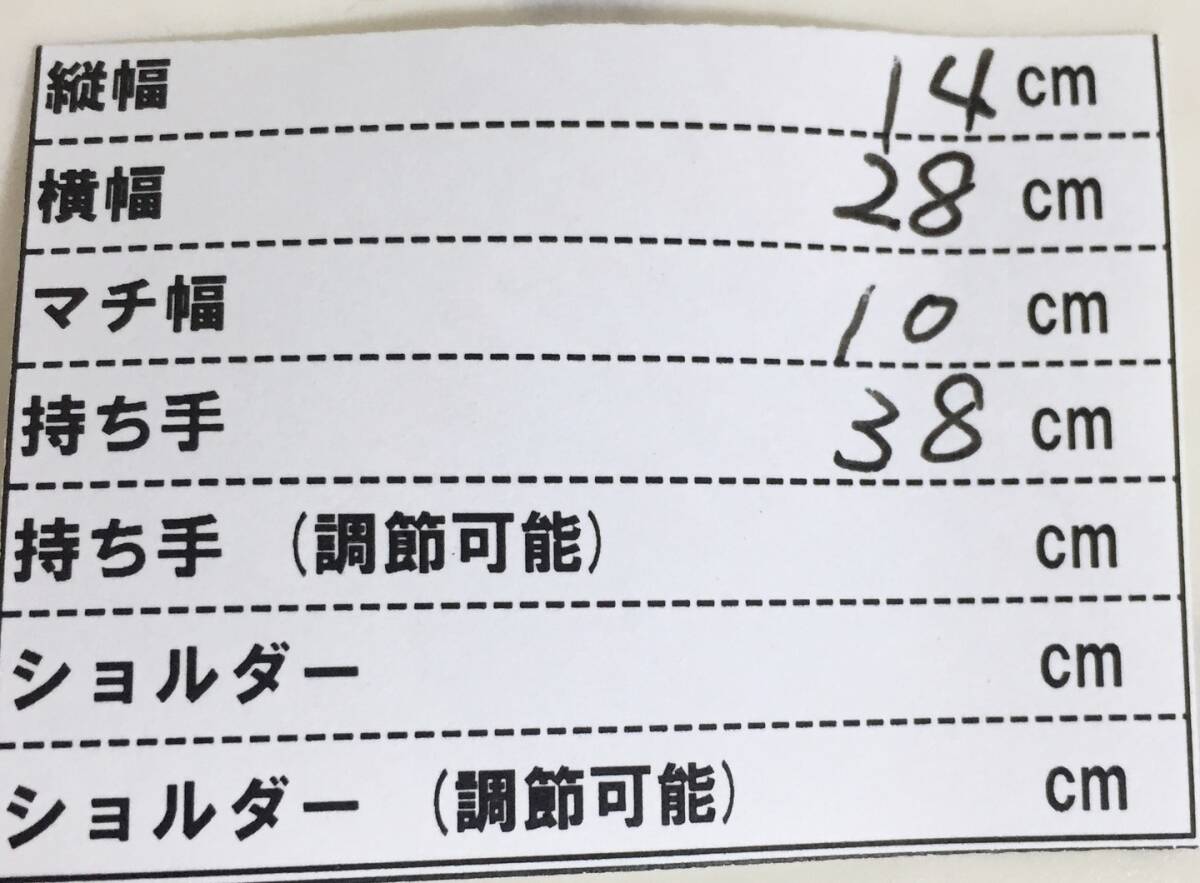 縦幅 14 cm
横幅 28 cm
マチ幅 10 cm
持ち手 38 cm
持ち手 (調節可能) cm
ショルダー cm
ショルダー (調節可能) cm